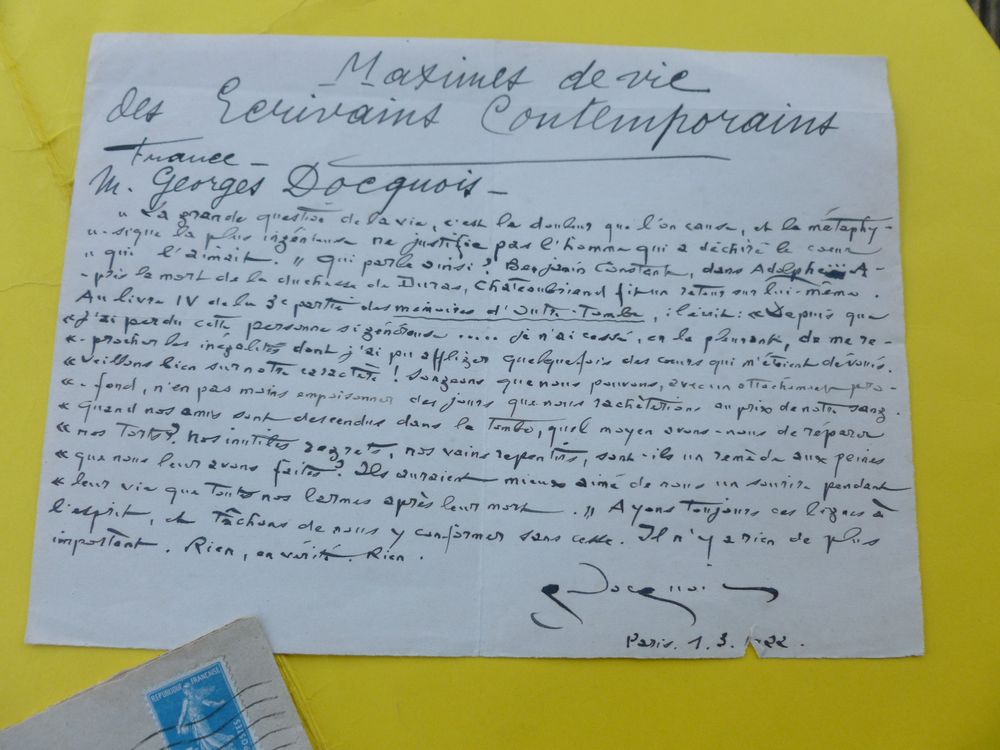 Maximes de vie
des Ecrivains Contemporains
France -
M. Georges Docquois -
" La grande question de la vie, c'est la douleur que l'on cause, et la métaphy-
" - sique la plus ingénieuse ne justifie pas l'homme qui a déchiré le cœur
" qui l'aimait. " Qui parle ainsi ? Benjamin Constant, dans Adolphe. A-
- près la mort de la duchesse de Duras, Châteaubriand fit un retour sur lui-même.
Au livre IV de la 3e partie des mémoires d'Outre-Tombe, il écrit : « Depuis que
« j'ai perdu cette personne si généreuse ..... je n'ai cessé, en la pleurant, de me re-
« - procher les inégalités dont j'ai pu affliger quelquefois des cœurs qui m'étaient dévoués.
« Veillons bien sur notre caractère ! Songeons que nous pouvons, avec un attachement pro-
« - fond, n'en pas moins empoisonner des jours que nous rachèterions au prix de notre sang.
« quand nos amis sont descendus dans la tombe, quel moyen avons-nous de réparer
« nos torts ? Nos inutiles regrets, nos vains repentirs, sont-ils un remède aux peines
« que nous leur avons faites ? Ils auraient mieux aimé de nous un sourire pendant
« leur vie que toutes nos larmes après leur mort. " Ayons toujours ces lignes à
l'esprit, et tâchons de nous y conformer sans cesse. Il n'y a rien de plus
important. Rien, en vérité. Rien.
Docquois
Paris. 1. 3. 1922.
REPUBLIQUE FRANÇAISE
POSTES